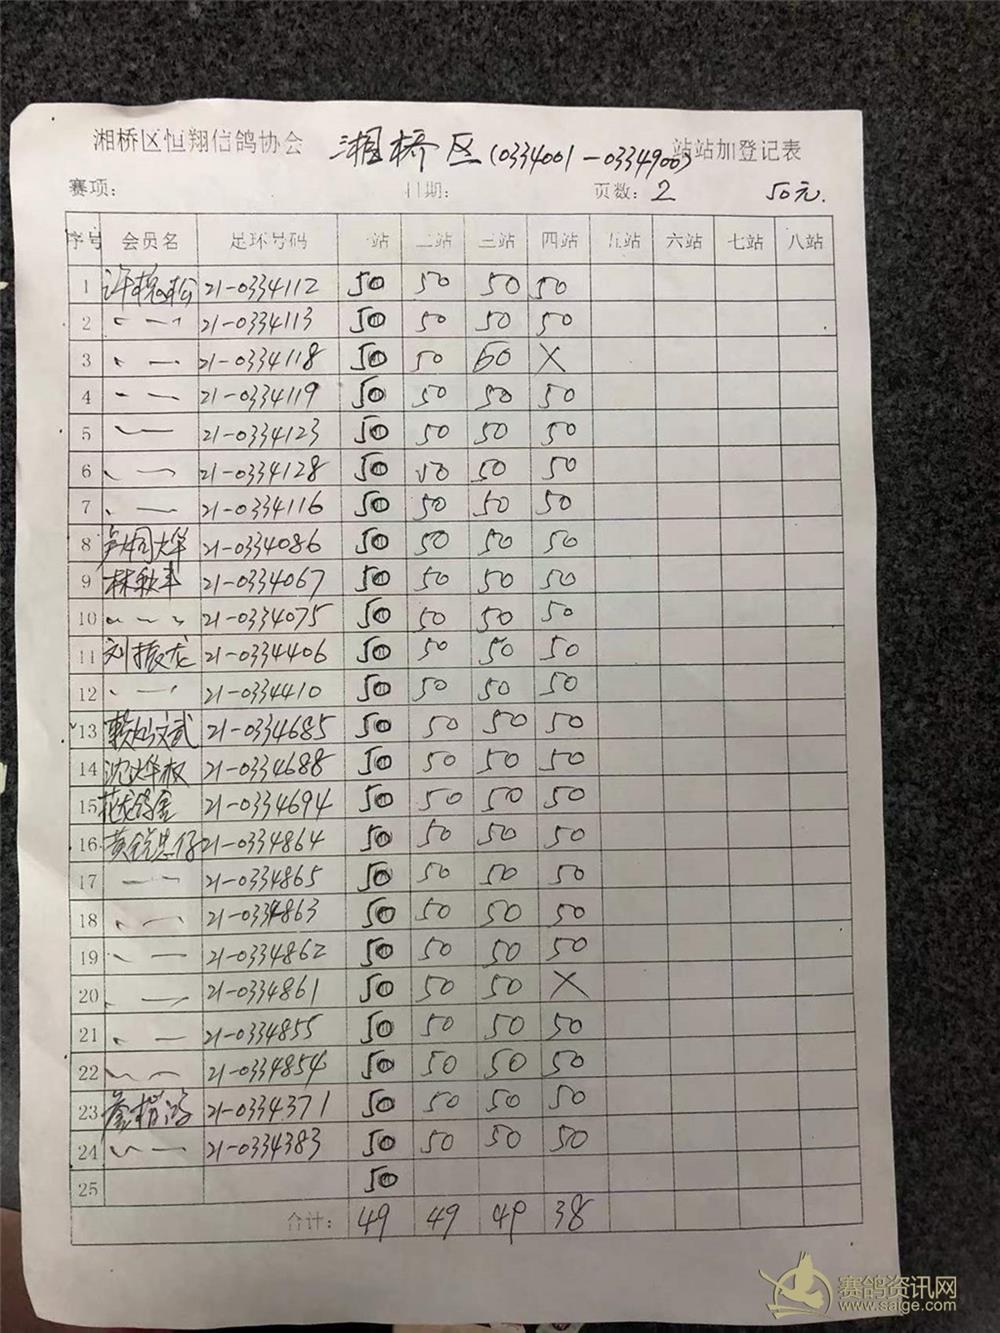 湘桥区恒翔信鸽协会 湘桥区(0334001-0334900) 站站加登记表
赛项: 日期: 页数: 2 50元.
序号 会员名 足环号码 一站 二站 三站 四站 五站 六站 七站 八站
1 21-0334112 50 50 50 50
2 〃 — 21-0334113 50 50 50 50
3 〃 — 21-0334118 50 50 50 X
4 〃 — 21-0334119 50 50 50 50
5 〃 — 21-0334123 50 50 50 50
6 〃 — 21-0334128 50 50 50 50
7 〃 — 21-0334116 50 50 50 50
8 21-0334086 50 50 50 50
9 林秋丰 21-0334067 50 50 50 50
10 〃 — 21-0334075 50 50 50 50
11 刘振龙 21-0334406 50 50 50 50
12 〃 — 21-0334410 50 50 50 50
13 21-0334685 50 50 50 50
14 沈烨权 21-0334688 50 50 50 50
15 21-0334694 50 50 50 50
16 21-0334864 50 50 50 50
17 〃 — 21-0334865 50 50 50 50
18 〃 — 21-0334863 50 50 50 50
19 〃 — 21-0334862 50 50 50 50
20 〃 — 21-0334861 50 50 50 X
21 〃 — 21-0334855 50 50 50 50
22 〃 — 21-0334854 50 50 50 50
23 21-0334371 50 50 50 50
24 〃 — 21-0334383 50 50 50 50
25 50
合计: 49 49 49 38
赛鸽资讯网
www.saige.com